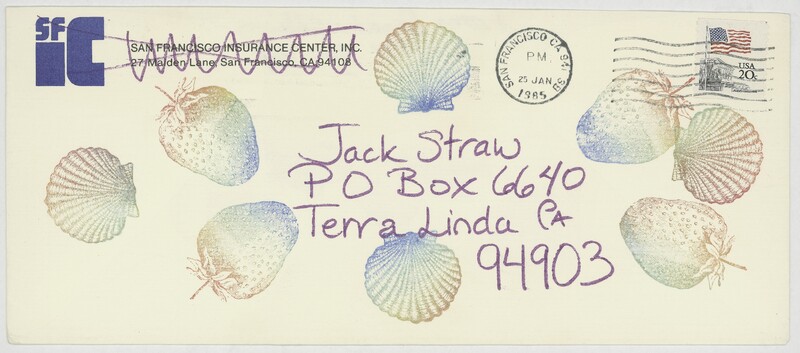 SF
iC
SAN FRANCISCO INSURANCE CENTER, INC.
27 Maiden Lane, San Francisco, CA 94108
SAN FRANCISCO CA 941
PM
25 JAN
1985
USA
20c
Jack Straw
PO Box 6640
Terra Linda CA
94903